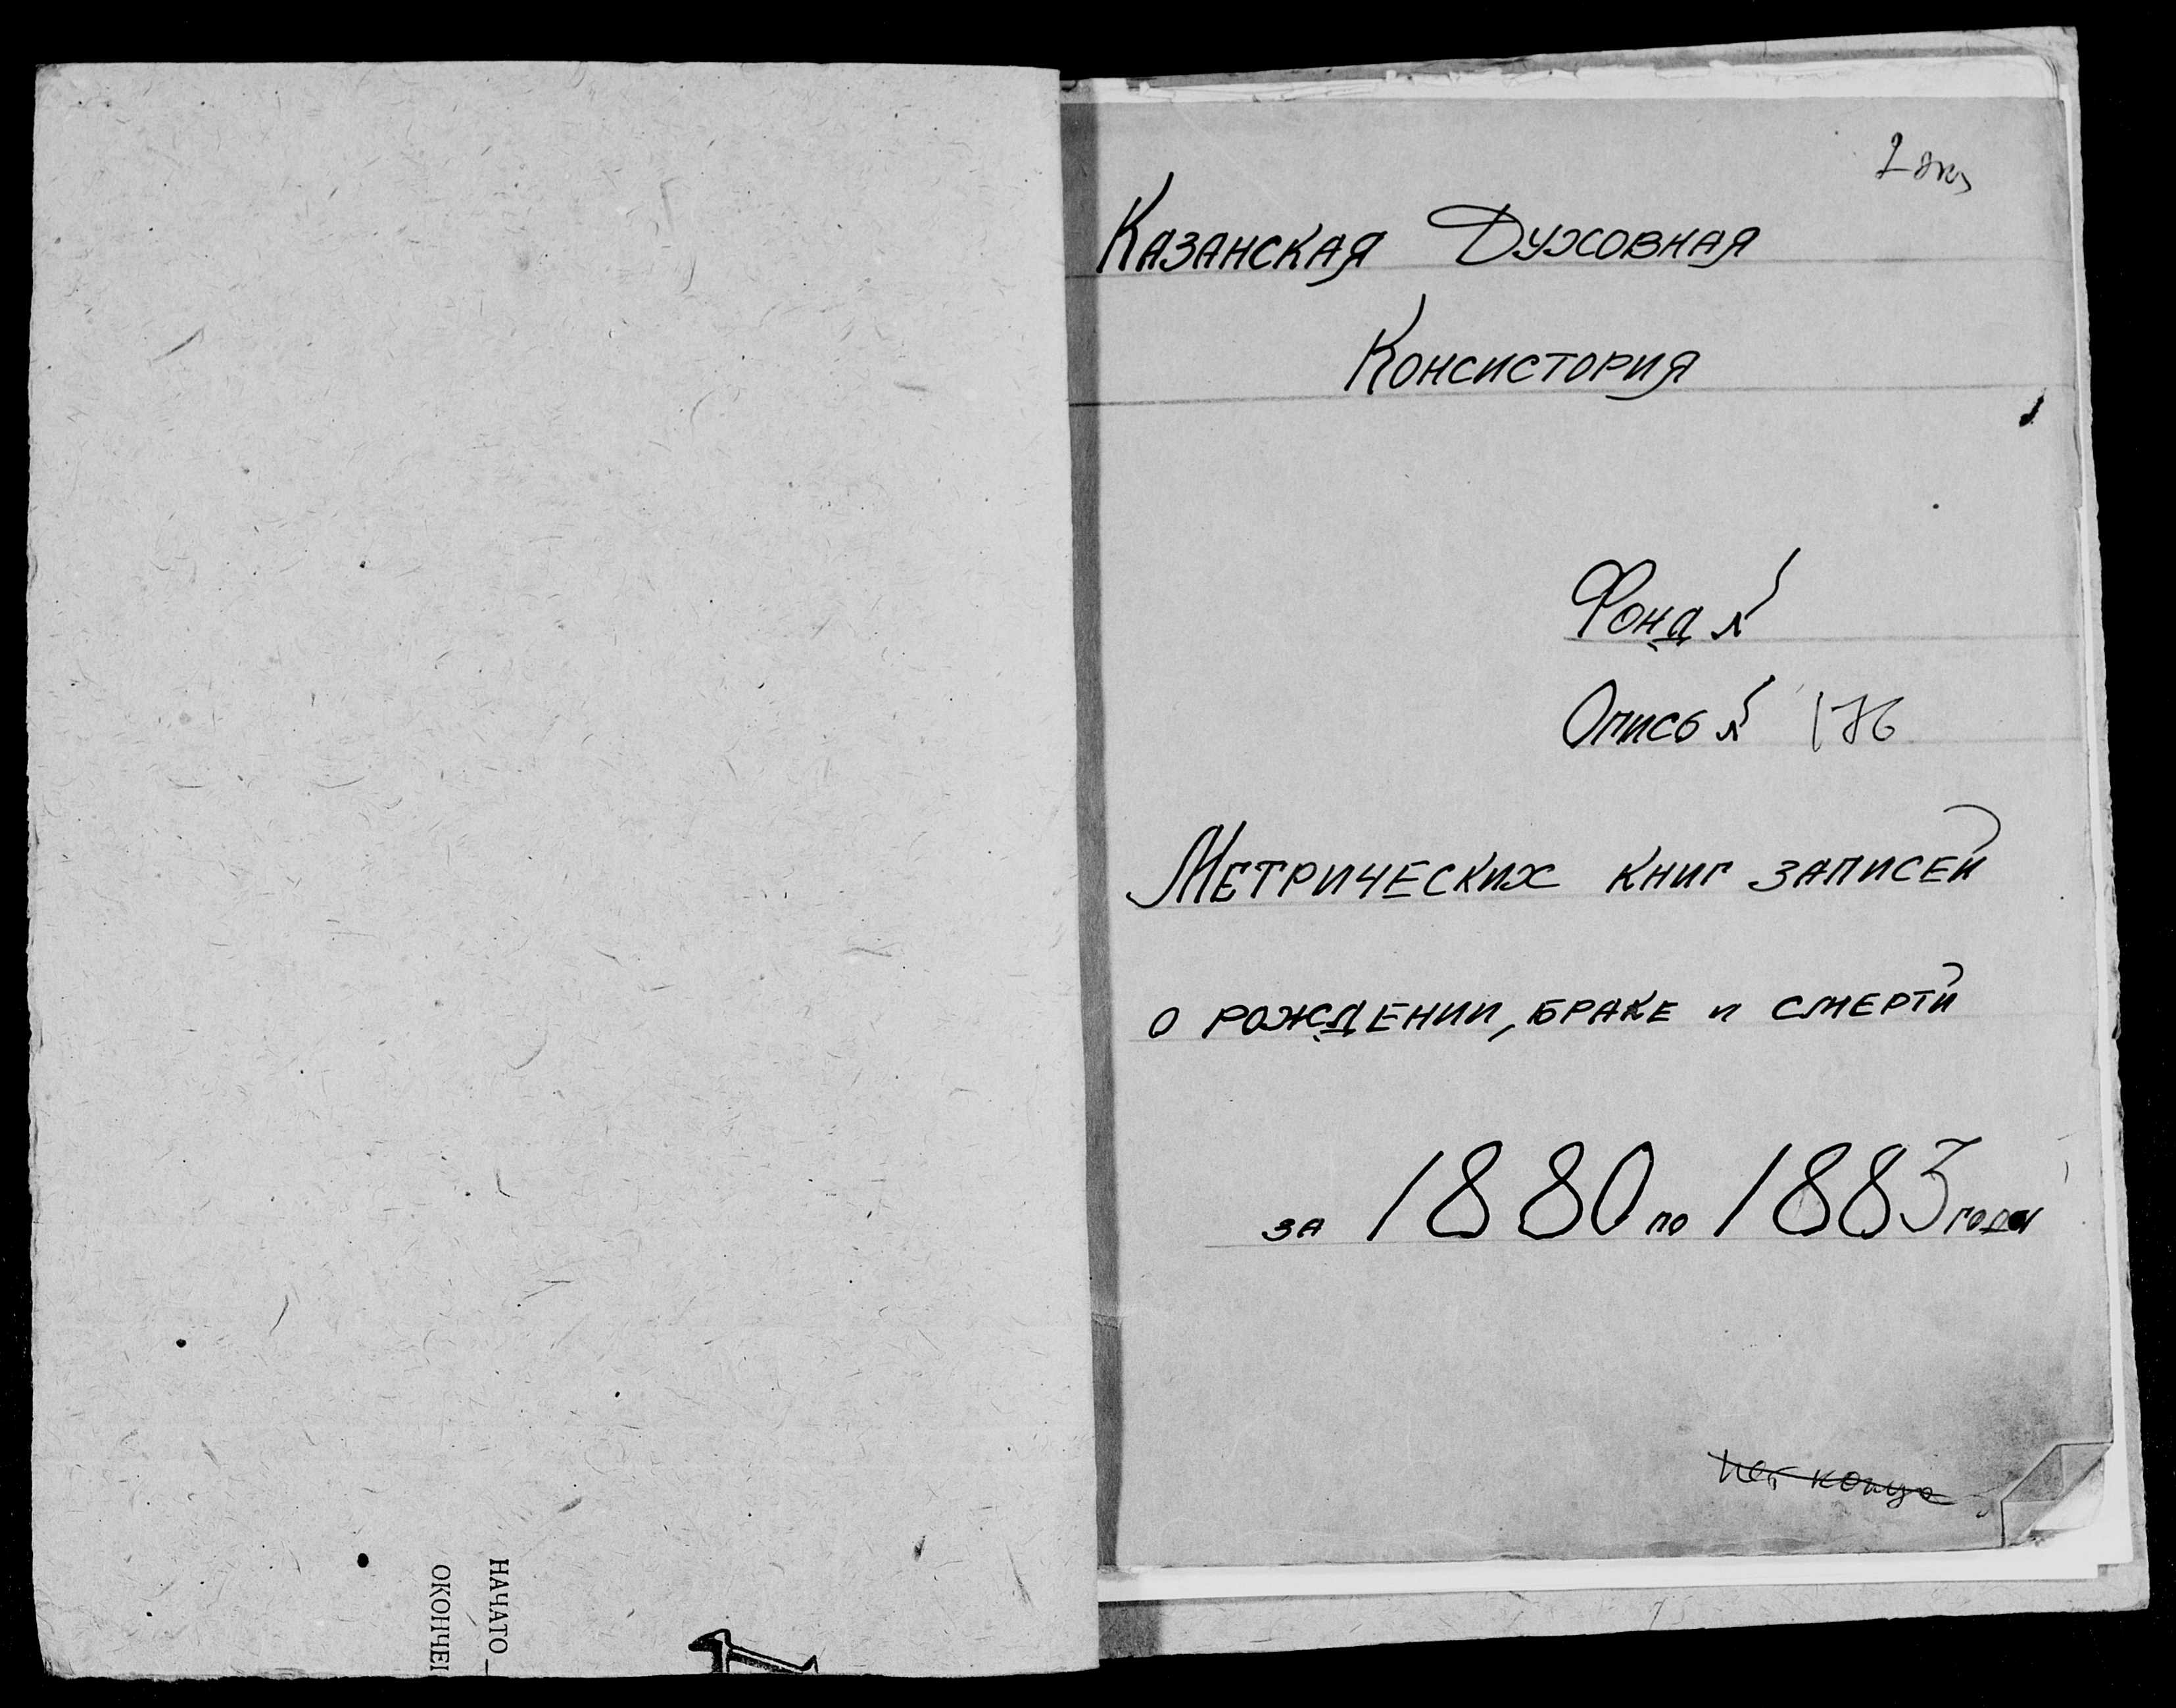 НАЧАТО
ОКОНЧЕ
2 экз
Казанская Духовная
Консистория
Фонд №
Опись № 176
Метрических книг записей
о рождении, браке и смерти
за 1880 по 1883 годы
нет конца